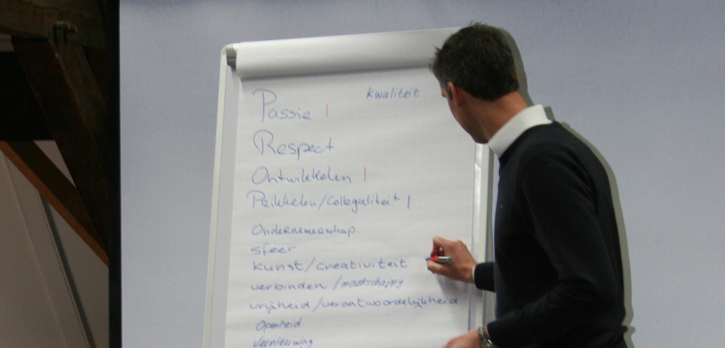 kwaliteit
Passie |
Respect
Ontwikkelen |
Prikkelen/Collegialiteit |
Ondernemerschap
sfeer
kunst/creativiteit
verbinden /maatschappy
vrijheid/verantwoordelijkheid
Openheid
Vernieuwing